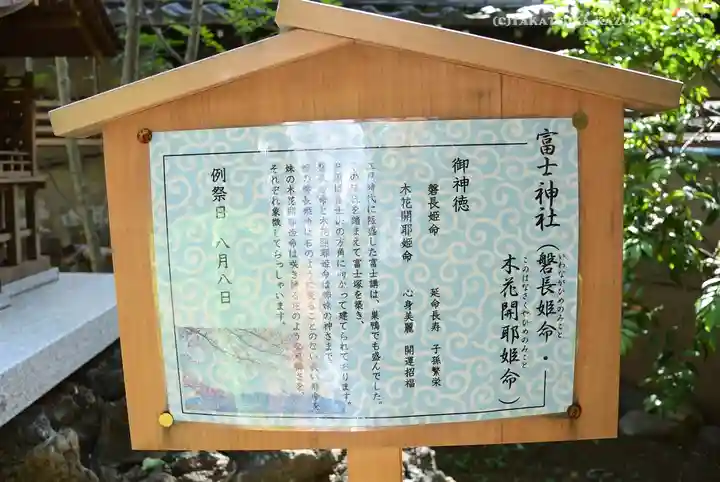 富士神社（磐長姫命・
いわながひめのみこと
木花開耶姫命）
このはなさくやひめのみこと
御神徳
磐長姫命　延命長寿　子孫繁栄
木花開耶姫命　心身美麗　開運招福
江戸時代に隆盛した富士講は、巣鴨でも盛んでした。
を踏まえて富士塚を築き、
富士山の方角に向かって建てられております。
命と木花開耶姫命は姉妹の神さまで、
姉の磐長姫命は石のように
妹の木花開耶姫命は咲き誇る花のような
それぞれ象徴してらっしゃいます。
例祭日　八月八日
(C)TAKATSUKA KAZUKI